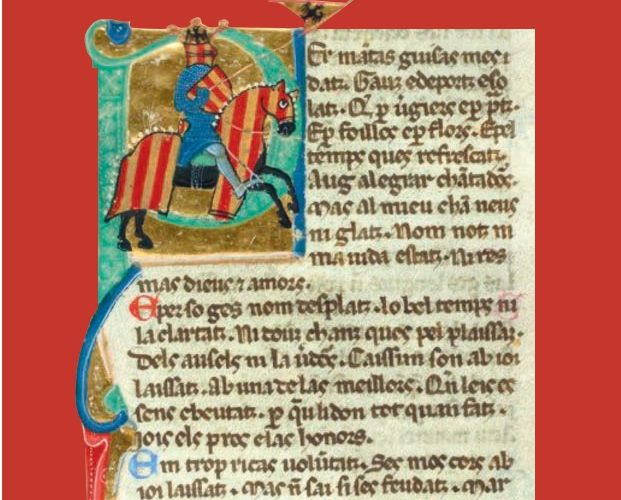 Er mãtas guisas mes i
datz. Gauz e deportz e so
latz. Q̃ p̱ ũgiers e p̱ p̃tz.
E p̱ foilles e p̱ flors. E pel
temps ques refrescatz.
Aug alegrar chãtadors.
Mas al mieu chã neus
ni glatz. Nom notz ni
maiuda estatz. Ni res
mas dieus ⁊ amors.
Eper so ges nom desplatz. lo bel temps ni
la clartatz. Ni dolz chanz ques pel plaissatz.
Dels ausels ni la ũdors. Caissim son ab ioi
laissatz. Ab una de las meillors. Q̃n leis es
sens e beutatz. p̱ q̃ li don tot quan fatz.
iois els pros e las honors.
Em trop ricas volũtatz. Ses mos cors ab
ioi laissatz. Mas ñ sai si ses feudatz. Mar